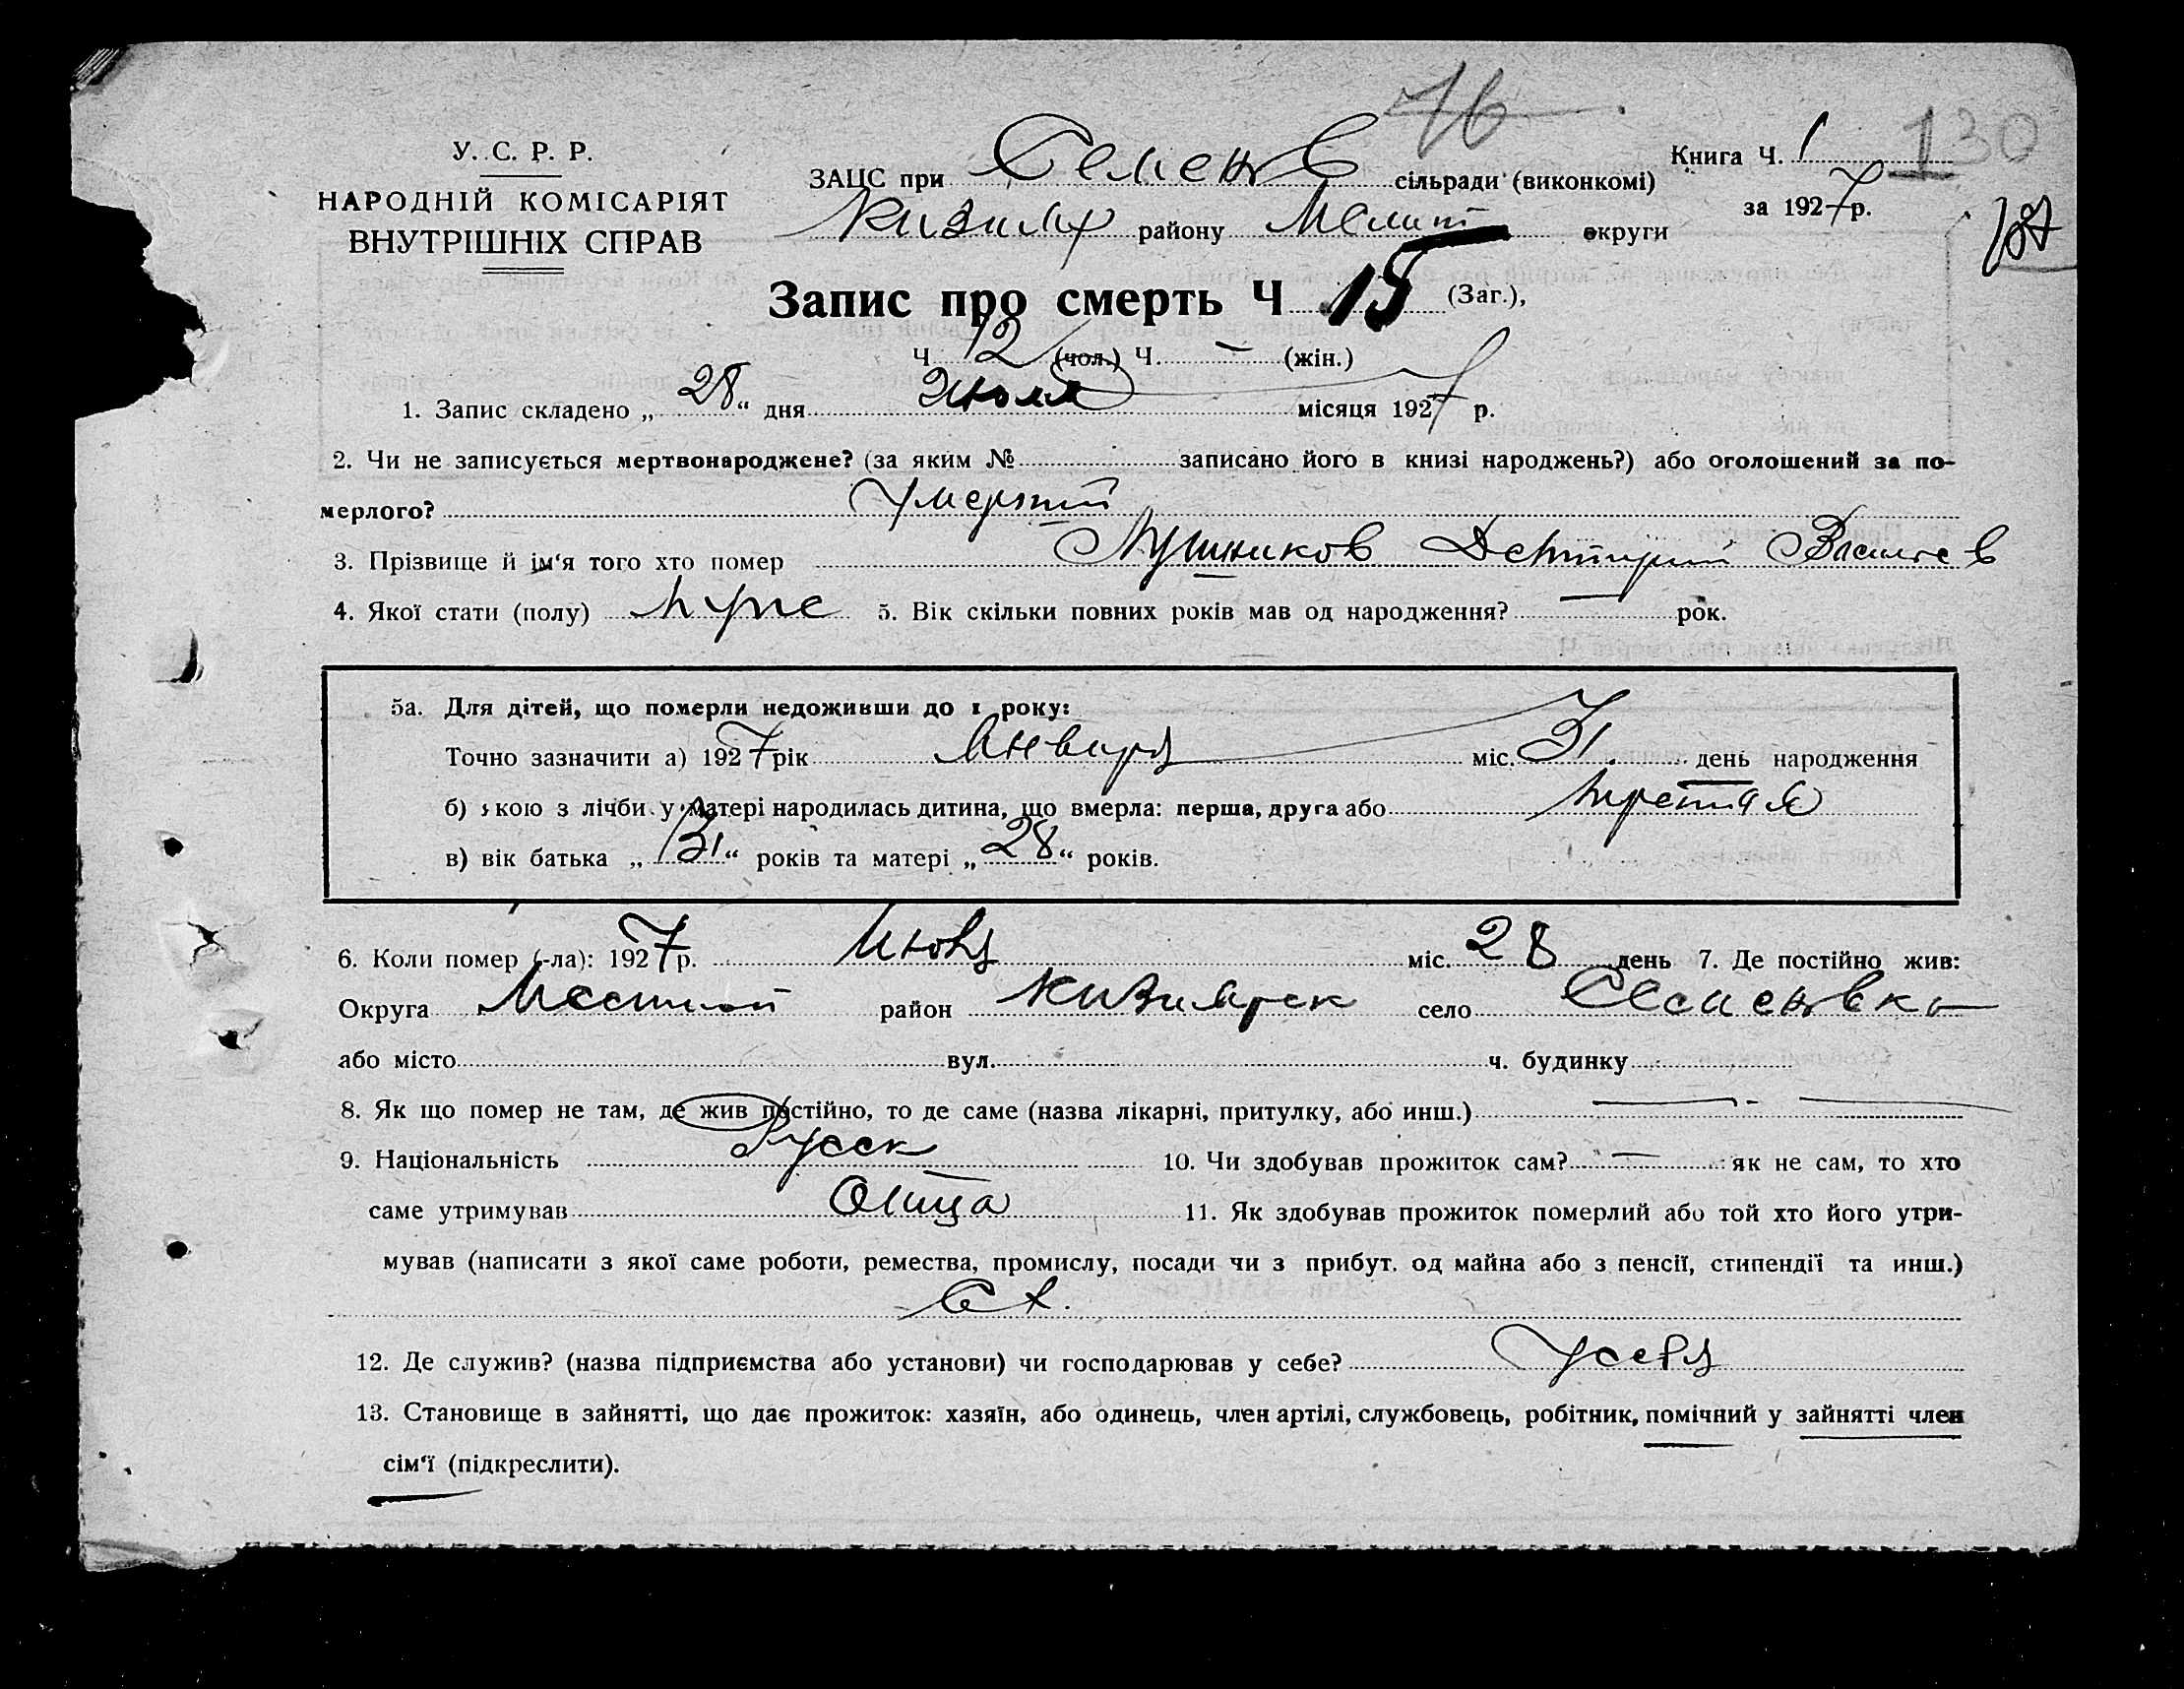 76
У. С. Р. Р.
НАРОДНІЙ КОМІСАРІЯТ
ВНУТРІШНІХ СПРАВ
ЗАЦС при Семенов сільради (виконкомі)
Кизияр району Мелит округи
Книга Ч. 1
130
за 1927 р.
Запис про смерть Ч 15 (Заг.),
Ч 12 (чол.) Ч. — (жін.)
1. Запис складено „ 28 “ дня Июля місяця 1927 р.
2. Чи не записується мертвонароджене? (за яким № записано його в книзі народжень?) або оголошений за по-
мерлого? Умерший
3. Прізвище й ім‘я того хто помер Дмитрий
4. Якої стати (полу) 5. Вік скільки повних років мав од народження? — рок.
5а. Для дітей, що померли недоживши до 1 року:
Точно зазначити а) 1927 рік Января міс. 31 день народження
б) якою з лічби у матері народилась дитина, що вмерла: перша, друга або третья
в) вік батька „ 31 “ років та матері „ 28 “ років.
6. Коли помер (-ла): 1927 р. Июля міс. 28 день 7. Де постійно жив:
Округа район Кизиярск село Семеновка
або місто вул. ч. будинку
8. Як що помер не там, де жив постійно, то де саме (назва лікарні, притулку, або инш.) —
9. Національність Русск 10. Чи здобував прожиток сам? — як не сам, то хто
саме утримував Отца 11. Як здобував прожиток померлий або той хто його утри-
мував (написати з якої саме роботи, ремества, промислу, посади чи з прибут. од майна або з пенсії, стипендії та инш.)
С х.
12. Де служив? (назва підприємства або установи) чи господарював у себе? У себя
13. Становище в зайнятті, що дає прожиток: хазяїн, або одинець, член артілі, службовець, робітник, помічний у зайнятті член
сім‘ї (підкреслити).